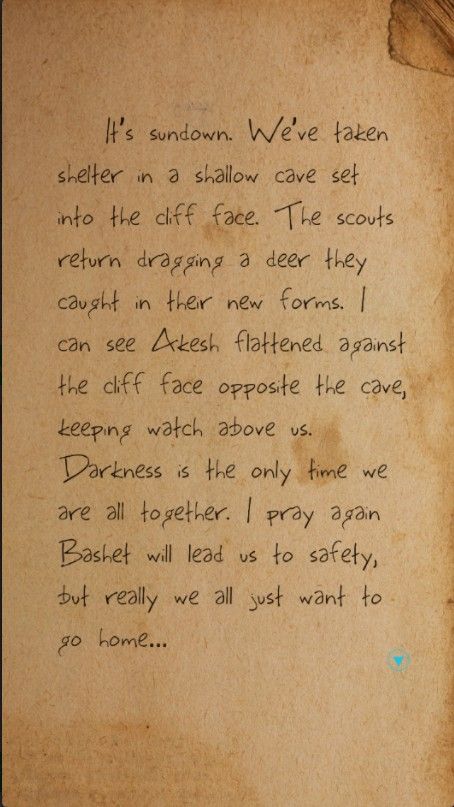 It's sundown. We've taken
shelter in a shallow cave set
into the cliff face. The scouts
return dragging a deer they
caught in their new forms. I
can see Akesh flattened against
the cliff face opposite the cave,
keeping watch above us.
Darkness is the only time we
are all together. I pray again
Bashet will lead us to safety,
but really we all just want to
go home...